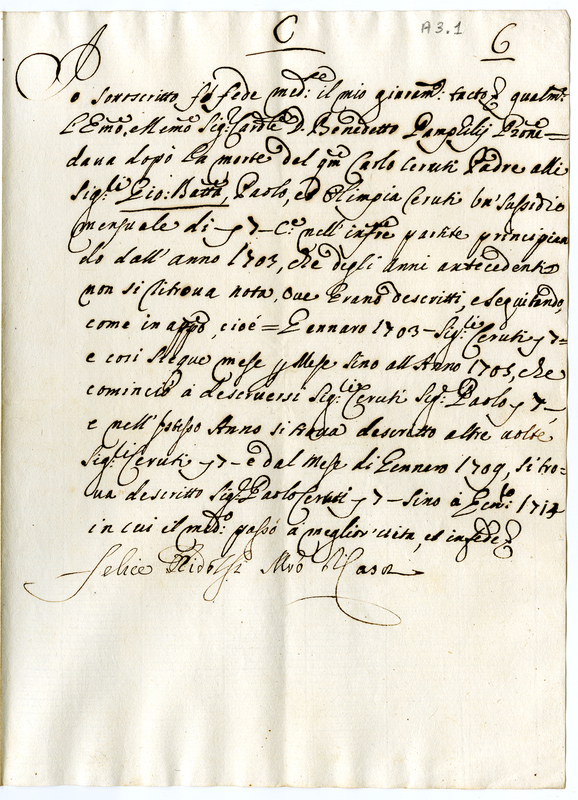 C
A3.1
6
Io sottoscritto fò fede med.e il mio giuram.to tacto &c qualm.e
l'Emo, e Rmo Sig.r Card.le D. Benedetto Panphilij Prone=
dava dopò la morte del qm Carlo Ceruti Padre alli
Sig.li Gio: Batta, Paolo, ed Olimpia Ceruti un' sussidio
mensuale di 7 nell' infre partite principian
do dall' anno 1703, che degli anni antecedenti
non si ritrova nota, ove erano descritti, e seguitando,
come in appo, cioè = Gennaro 1703 - Sig.li Ceruti 7 =
e così siegue mese p Mese sino all' Anno 1705, che
cominciò à descriversi Sig.li Ceruti Sig.r Paolo 7 -
e nell' istesso Anno si trova descritto altre volte
Sig.li Ceruti 7 - e dal Mese di Gennaro 1709, si tro=
va descritto Sig.r Paolo Ceruti 7 - sino à Genn.ro 1714
in cui il med.o passò à meglior vita, et in fede &c
Felice Ridolfi Mro di Casa